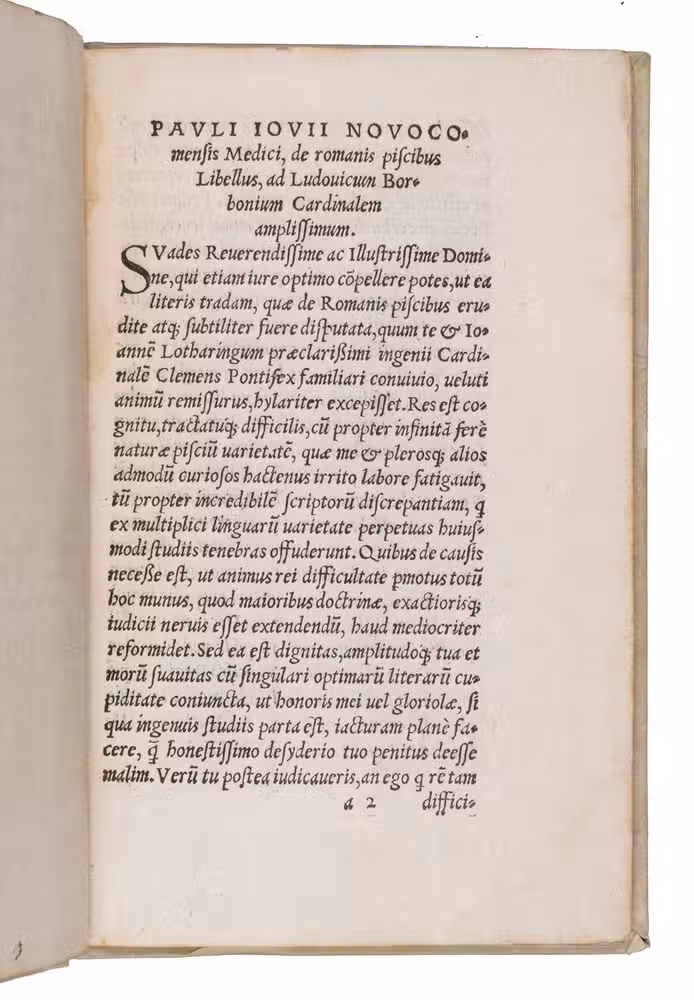 PAVLI IOVII NOVOCO-
mensis Medici, de romanis piſcibus
Libellus, ad Ludouicum Bor-
bonium Cardinalem
ampliſſimum.
SVades Reuerendiſſime ac Illuſtriſſime Domi-
ne, qui etiam iure optimo cõpellere potes, ut ea
literis tradam, quæ de Romanis piſcibus eru-
dite atq; ſubtiliter fuere diſputata, quum te & Io-
annẽ Lotharingum præclarißimi ingenii Cardi-
nalẽ Clemens Pontifex familiari conuiuio, ueluti
animũ remiſſurus, hylariter excepiſſet. Res eſt co-
gnitu, tractatuq; difficilis, cũ propter infinitã ferè
naturæ piſciũ uarietatẽ, quæ me & plerosq; alios
admodũ curioſos hactenus irrito labore fatigauit,
tũ propter incredibilẽ ſcriptorũ diſcrepantiam, q
ex multiplici linguarũ uarietate perpetuas huiuſ-
modi ſtudiis tenebras offuderunt. Quibus de cauſis
neceße eſt, ut animus rei difficultate ꝓmotus totũ
hoc munus, quod maioribus doctrinæ, exactiorisq;
iudicii neruis eſſet extendendũ, haud mediocriter
reformidet. Sed ea eſt dignitas, amplitudoq; tua et
morũ ſuauitas cũ ſingulari optimarũ literarũ cu-
piditate coniuncta, ut honoris mei uel gloriolæ, ſi
qua ingenuis ſtudiis parta eſt, iacturam planè fa-
cere, q̃ honeſtiſſimo deſyderio tuo penitus deeſſe
malim. Verũ tu poſtea iudicaueris, an ego q rẽ tam
a 2 diffici-